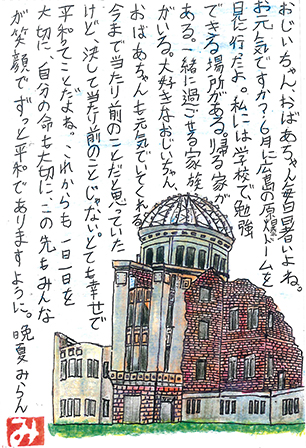 おじいちゃん、おばあちゃん毎日暑いよね。
お元気ですか？6月に広島の原爆ドームを
見に行だよ。私には学校で勉強
できる場所がある。帰る家が
ある。一緒に過ごせる家族
がいる。大好きなおじいちゃん、
おばあちゃんも元気でいてくれる。
今まで当たり前のことだと思っていた
けど、決して当たり前のことじゃない。とても幸せで
平和なことだよね。これからも一日一日を
大切に、自分の命も大切に、この先もみんな
が笑顔でずっと平和でありますように。晩夏 みらん
み